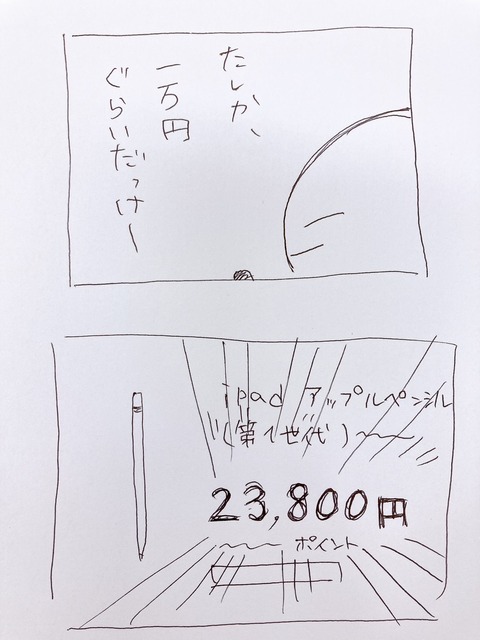 たしか、
一万円
ぐらいだっけ〜
ipad アップルペンシル
(第1世代)〜〜
23,800円
〜〜ポイント